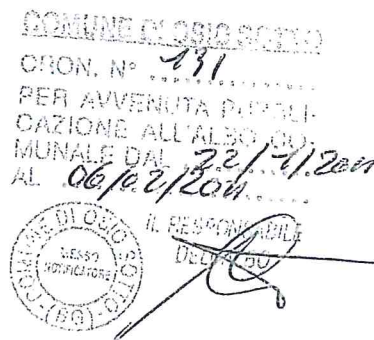 COMUNE DI OSIO SOTTO
CRON. N° 131
PER AVVENUTA PUBBLI-
CAZIONE ALL'ALBO CO-
MUNALE DAL 22/1/2011
AL 06/02/2011
IL RESPONSABILE
DELL'ALBO
COMUNE DI OSIO SOTTO (BG)
MESSO
NOTIFICATORE